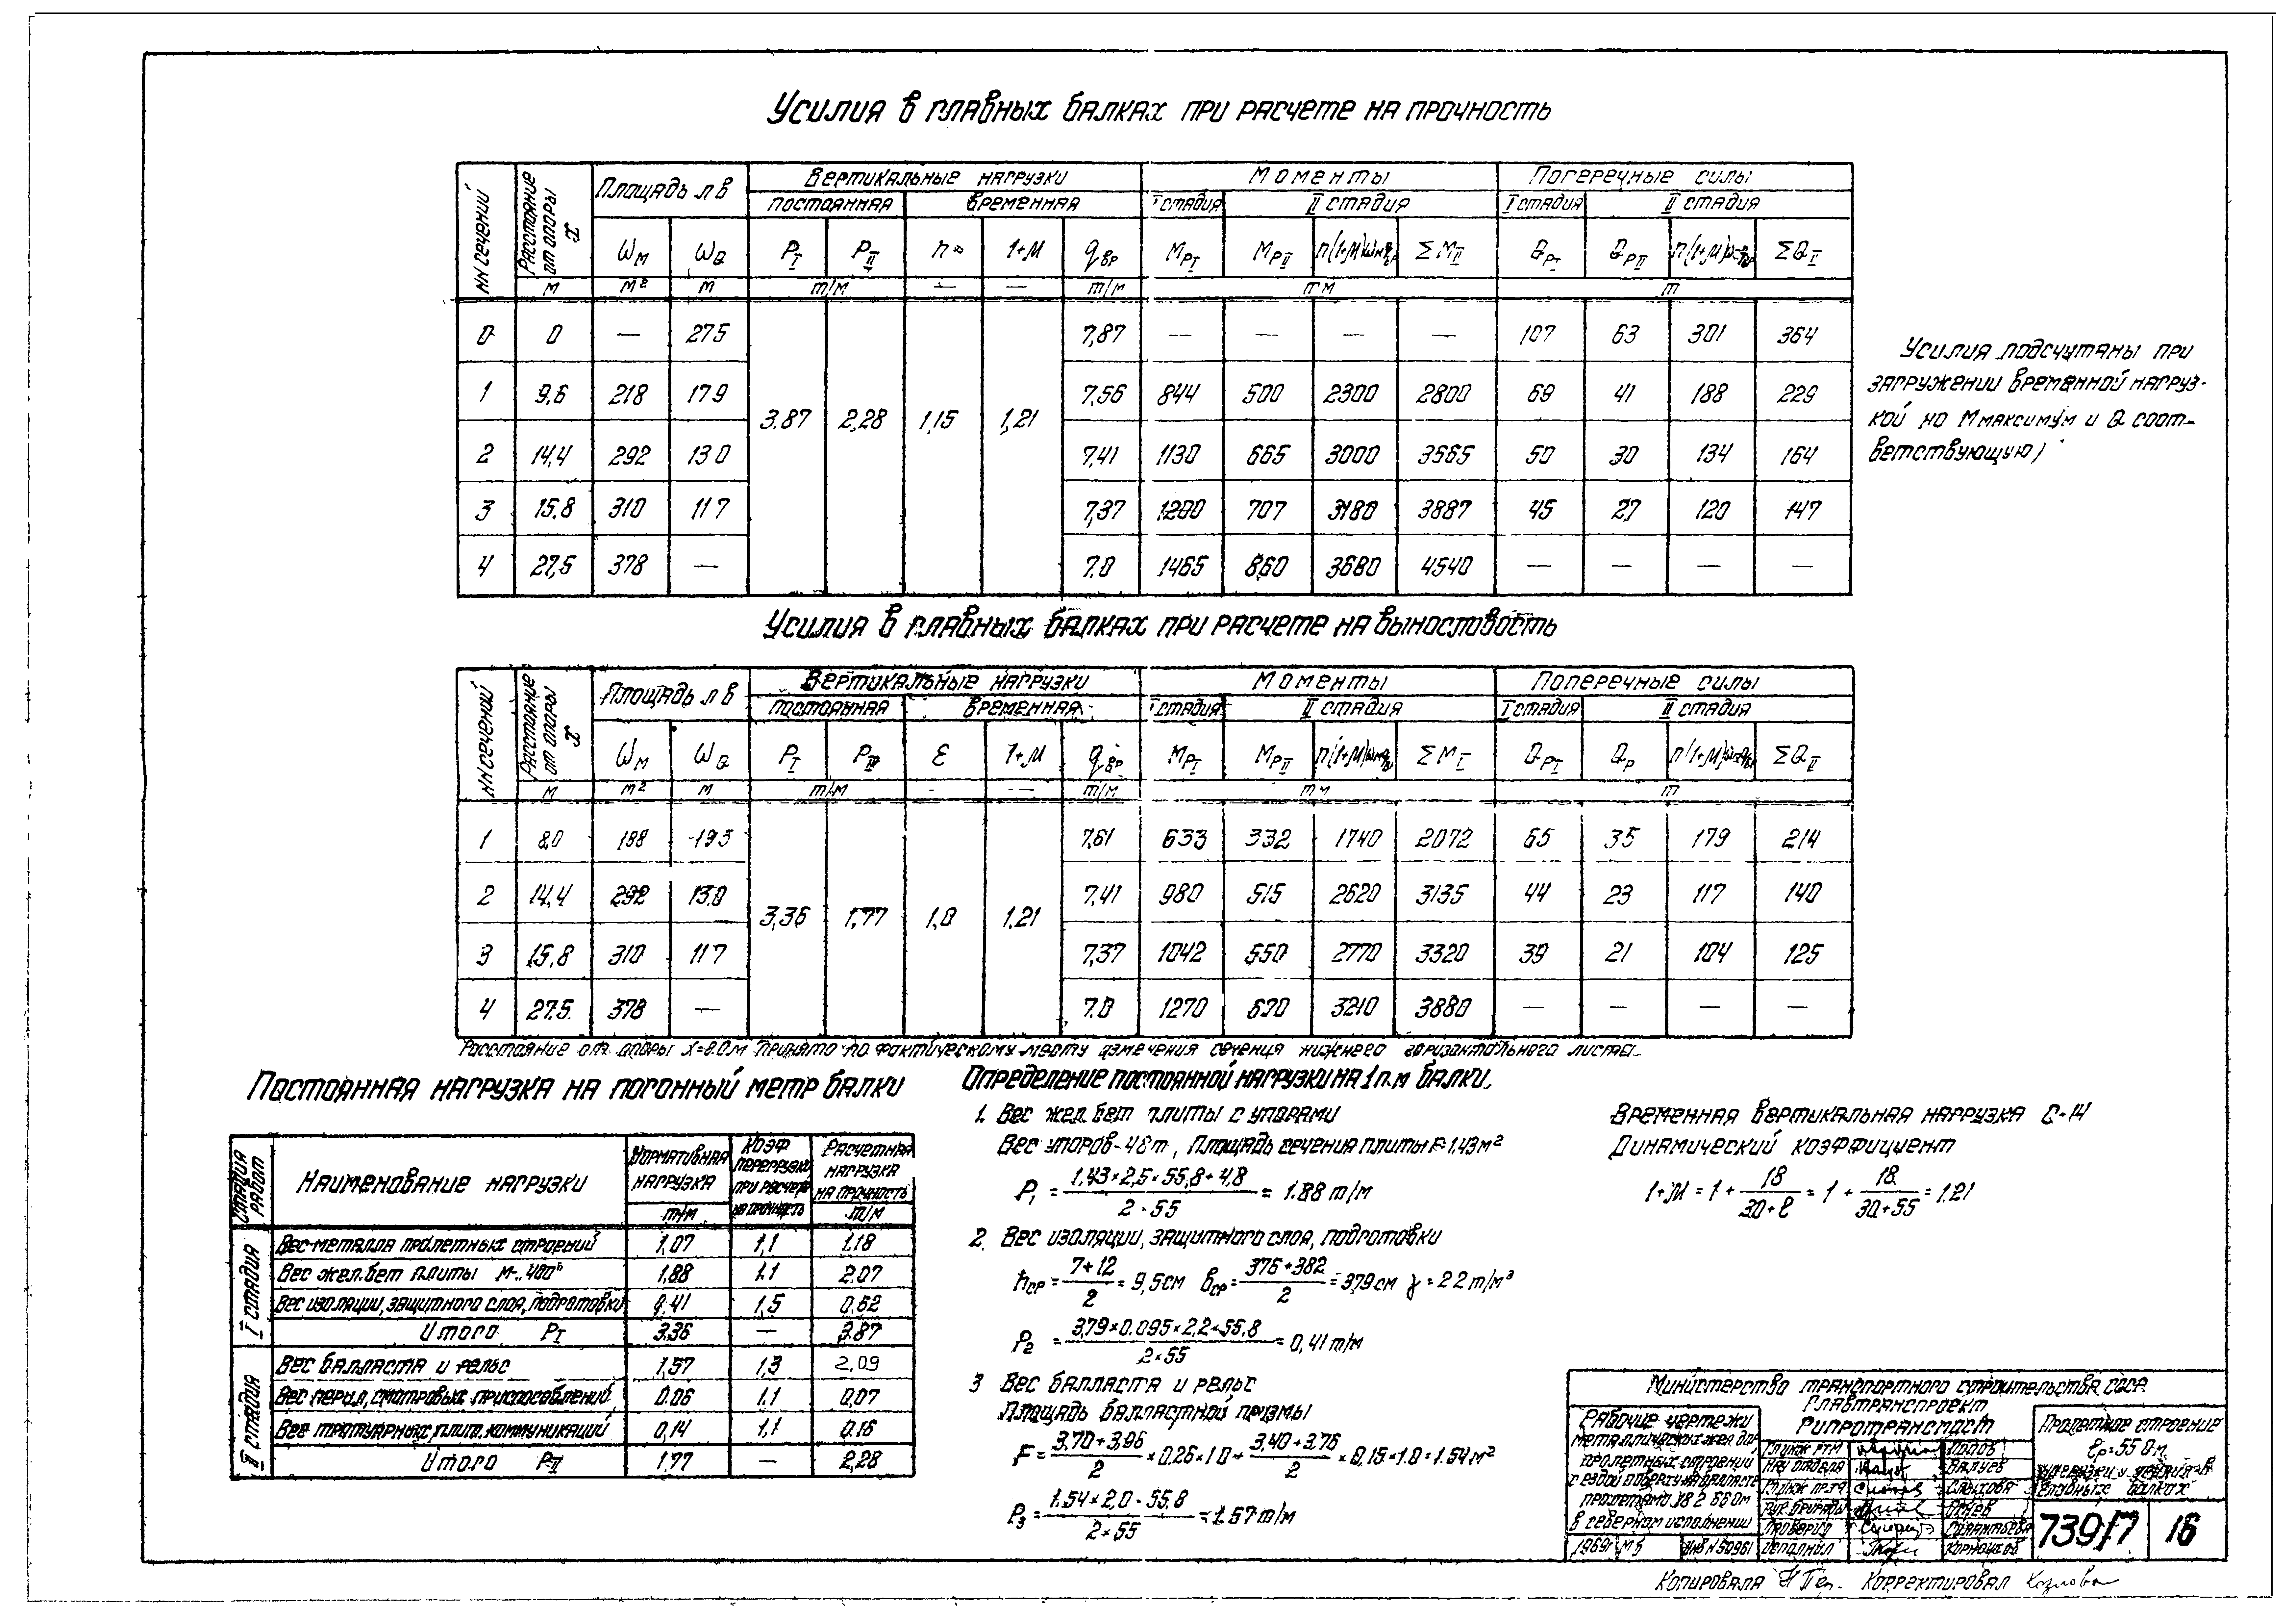 Усилия в главных балках при расчете на прочность
NN сечений | Расстояние от опоры x | Площадь л в | Вертикальные нагрузки | Моменты | Поперечные силы
постоянная | временная | I стадия | II стадия | I стадия | II стадия
ωM | ωQ | PI | PII | n | 1+М | qвр | MPI | MPII | ΣMII | QPI | QPII | ΣQII
м | м² | м | т/м | — | — | т/м | тм | т
0 | 0 | — | 27.5 | 7,87 | — | — | — | — | 107 | 63 | 301 | 364
1 | 9,6 | 218 | 17.9 | 3.87 | 2,28 | 1,15 | 1,21 | 7,56 | 844 | 500 | 2300 | 2800 | 69 | 41 | 188 | 229
2 | 14,4 | 292 | 13 0 | 7,41 | 1130 | 665 | 3000 | 3665 | 50 | 30 | 134 | 164
3 | 15.8 | 310 | 11 7 | 7,37 | 1200 | 707 | 3180 | 3887 | 45 | 27 | 120 | 147
4 | 27,5 | 378 | — | 7.0 | 1465 | 860 | 3680 | 4540 | — | — | — | —
Усилия подсчитаны при
загружении временной нагруз-
кой на М максимум и Q соот-
ветствующую)
Усилия в главных балках при расчете на выносливость
NN сечений | Расстояние от опоры x | Площадь л в | Вертикальные нагрузки | Моменты | Поперечные силы
постоянная | временная | I стадия | II стадия | I стадия | II стадия
ωM | ωQ | PI | PII | ε | 1+М | qвр | MPI | MPII | ΣMI | QPI | QP | ΣQII
м | м² | м | т/м | - | — | т/м | тм | т
1 | 8,0 | 188 | 19 5 | 7,61 | 633 | 332 | 1740 | 2072 | 65 | 35 | 179 | 214
2 | 14,4 | 292 | 13,0 | 3,36 | 1,77 | 1,0 | 1.21 | 7,41 | 980 | 515 | 2620 | 3135 | 44 | 23 | 117 | 140
3 | 15,8 | 310 | 11 7 | 7,37 | 1042 | 550 | 2770 | 3320 | 39 | 21 | 104 | 125
4 | 27.5 | 378 | — | 7.0 | 1270 | 670 | 3210 | 3880 | — | — | — | —
Расстояние от опоры x=8.0м принято по фактическому месту изменения сечения нижнего горизонтального листа
Постоянная нагрузка на погонный метр балки
Стадия работ | Наименование нагрузки | Нормативная нагрузка | Коэф перегрузки при расчете на прочность | Расчетная нагрузка на прочность
т/м | т/м
I стадия
Вес металла пролетных строений | 1,07 | 1,1 | 1.18
Вес жел.бет плиты М-„400" | 1,88 | 1.1 | 2.07
Вес изоляции, защитного слоя, подготовки | 0.41 | 1,5 | 0.62
Итого PI | 3.36 | — | 3.87
II стадия
Вес балласта и рельс | 1,57 | 1,3 | 2,09
Вес перил, смотровых приспособлений | 0.06 | 1.1 | 0,07
Вес тротуарных плит, коммуникаций | 0,14 | 1,1 | 0.16
Итого PII | 1,77 | — | 2,28
Определение постоянной нагрузки на 1 п.м балки.
1. Вес жел. бет плиты с упорами
Вес упоров - 4 8 т, Площадь сечения плиты F=1.43м²
P₁ = (1,43×2,5×55,8+4,8)/(2·55) = 1.88 т/м
2. Вес изоляции, защитного слоя, подготовки
hср = (7+12)/2 = 9,5см вср = (376+382)/2 = 379см γ=2 2 т/м³
P₂ = (3,79×0.095×2,2×55,8)/(2×55) = 0,41 т/м
3 Вес балласта и рельс
Площадь балластной призмы
F = (3,70+3,96)/2 ×0.26×1 0+ (3,40+3,76)/2 ×0,15×1.0=1.54м²
P₃ = (1.54×2,0·55,8)/(2×55) =1.57 т/м
Временная вертикальная нагрузка С-14
Динамический коэффициент
1+М = 1+ 18/(30+ℓ) = 1 + 18/(30+55) = 1.21
Министерство транспортного строительства СССР
Главтранспроект
Гипротрансмост
Рабочие чертежи
металлических жел дор.
пролетных строений
с ездой поверху на балласте
пролетами 18 2 55 0м
в северном исполнении
1969г | М б | Инв N 50961
Гл инж ГТМ | Попов
Нач отдела | Валуев
Гл инж пр-та
Рук. бригады
Проверил
Исполнил
Пролетное строение
ℓр=55 0м
Нагрузки и усилия в
главных балках
739/7 | 16
Копировала Корректировал Козлова